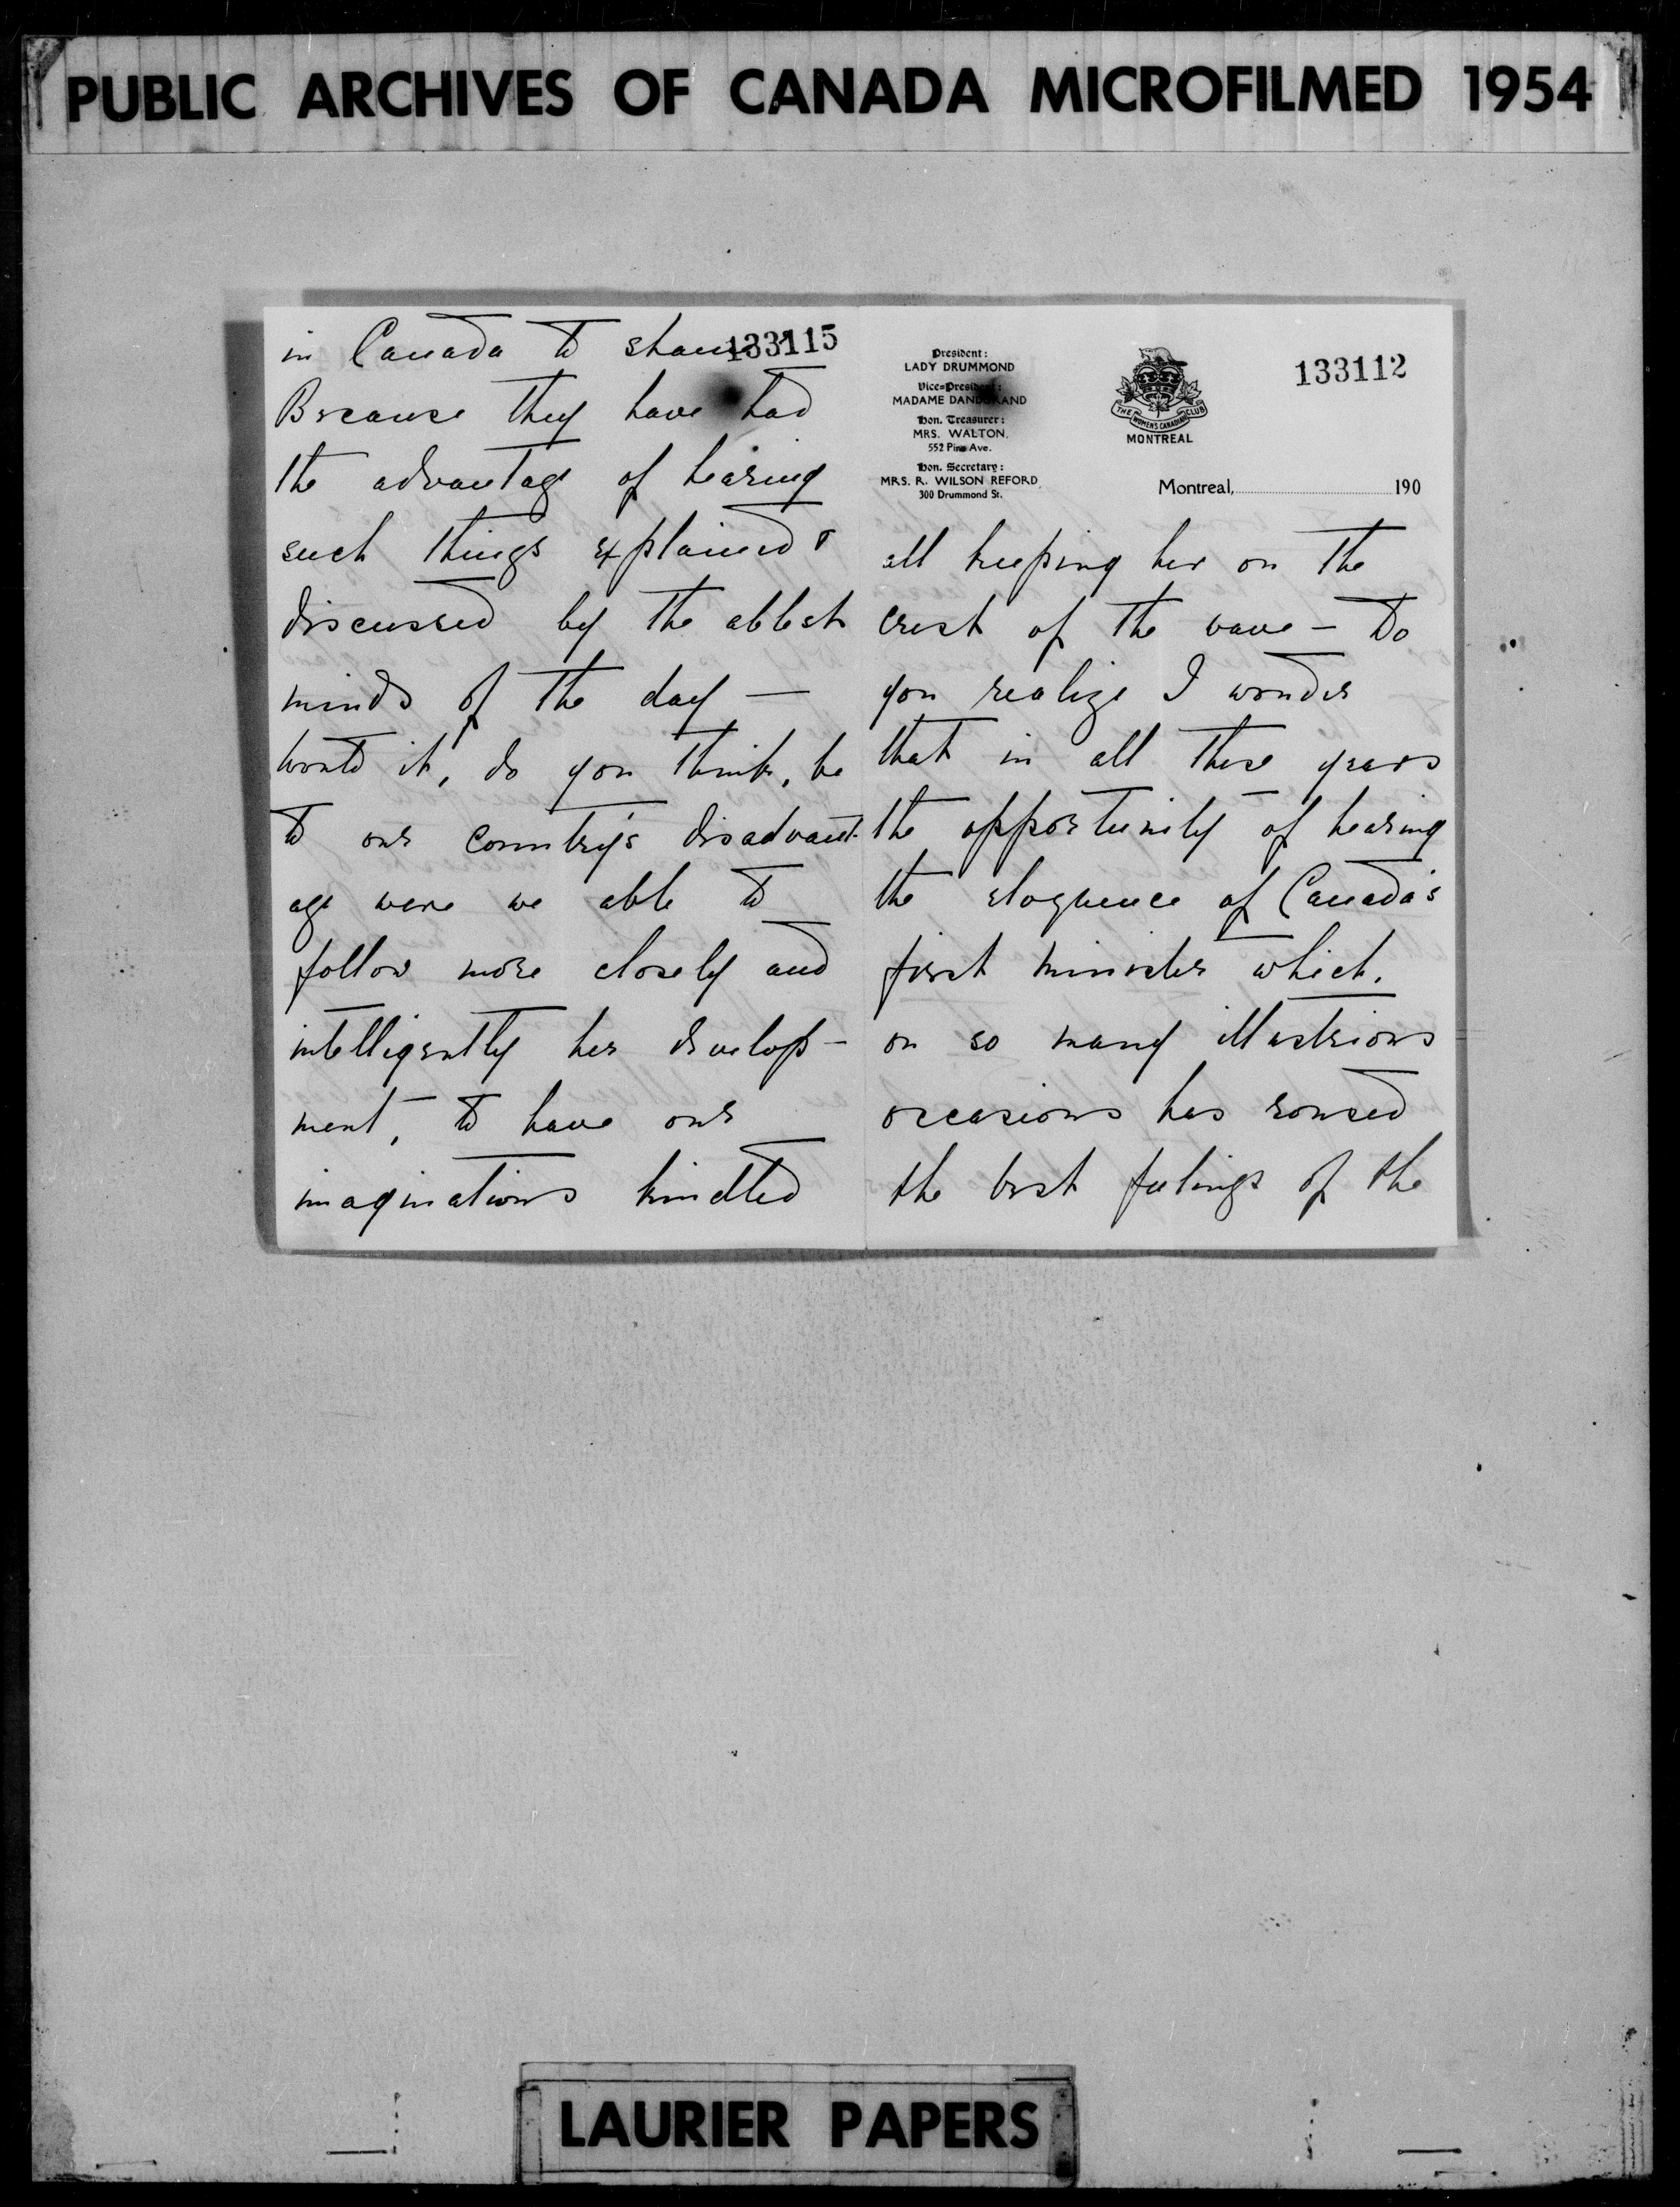 PUBLIC ARCHIVES OF CANADA MICROFILMED 1954
133115
in Canada to shame?
Because they have had
the advantage of hearing
such things explained &
discussed by the ablest
minds of the day —
Would it, do you think, be
to our country's disadvant-
age were we able to
follow more closely and
intelligently her develop-
ment, to have our
imaginations kindled
President:
LADY DRUMMOND
Vice-President:
MADAME DANDURAND
Hon. Treasurer:
MRS. WALTON,
552 Pine Ave.
Hon. Secretary:
MRS. R. WILSON REFORD,
300 Drummond St.
THE WOMEN'S CANADIAN CLUB
MONTREAL
133112
Montreal, 190
all keeping her on the
crest of the wave — Do
you realize I wonder
that in all these years
the opportunity of hearing
the eloquence of Canada's
first minister which,
on so many illustrious
occasions has roused
the best feelings of the
LAURIER PAPERS